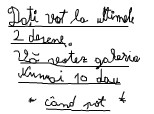 Dați vot la ultimele
2 desene.
Vă votez galeria
Numai 10 dau
* când pot *